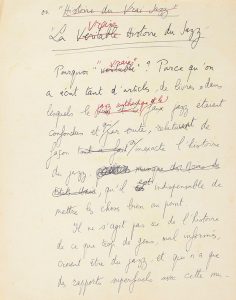 ou "Histoire du Vrai Jazz"
Vraie
"La Véritable Histoire du Jazz
Vraie
Pourquoi "véritable"? Parce qu'on
a écrit tant d'articles, de livres dans
lesquels le jazz authentique et le faux jazz étaient
confondus et qui, relataient de
façon inexacte l'histoire
du jazz, musique des Noirs des
Etats-Unis, qu'il est indispensable de
mettre les choses bien au point.
Il ne s'agit pas ici de l'histoire
de ce que trop de gens, mal informés,
croient être du jazz, et qui n'a que
des rapports superficiels avec cette mu-